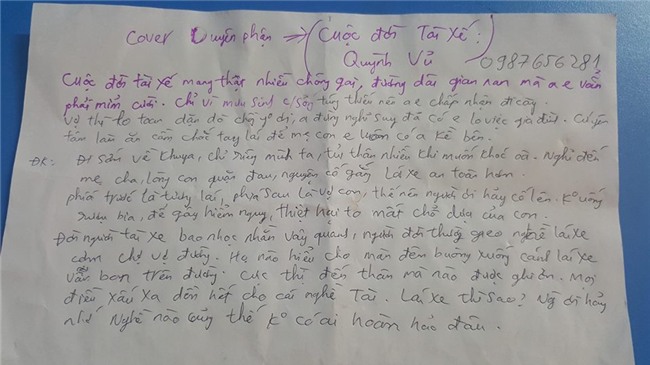 Cover Duyên phận => (Cuộc đời Tài Xế.
Quỳnh Vũ
0987656281
Cuộc đời tài xế mang thật nhiều chông gai, đường dài gian nan mà a e vẫn
phải mỉm cười. Chỉ vì mưu sinh c/sống túng thiếu nên a e chấp nhận đi cày.
Vợ thì lo toan dặn dò chồng yo đi, a đừng nghĩ suy đã có e lo việc gia đình. Cứ yên
tâm làm ăn cầm chắc tay lái để mẹ con e luôn có a kề bên.
ĐK: Đi sớm về khuya, chỉ riêng mình ta, tủi thân nhiều khi muốn khóc oà. Nghĩ đến
mẹ cha, lòng con quặn đau, nguyện cố gắng lái xe an toàn hơn.
phía trước là tương lai, phía sau là vợ con, thế nên người ơi hãy cố lên. Ko uống
rượu bia, để gây hiểm nguy, thiệt hại to mất chỗ dựa của con.
Đời người tài xế bao nhọc nhằn vây quanh, người đời thường gieo nghề lái xe
cơm chợ vợ đường. Hạ nào hiểu cho màn đêm buông xuống cánh lái xe
vẫn bon trên đường. Cực thì đến thân mà nào được ghi ơn. Mọi
điều xấu xa dồn hết cho cái nghề Tài. Lái xe thì sao? Người ơi hãy
nhớ Nghề nào cũng thế ko có ai hoàn hảo đâu.